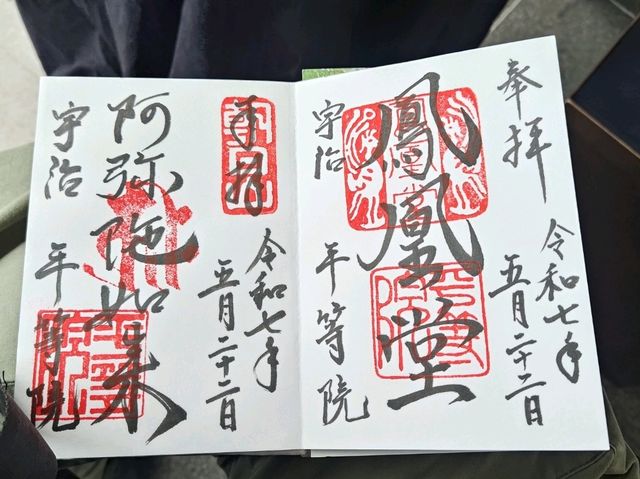 奉拝
令和七年
五月二十二日
鳳凰堂
宇治 平等院
奉拝
令和七年
五月二十二日
阿弥陀如来
宇治 平等院